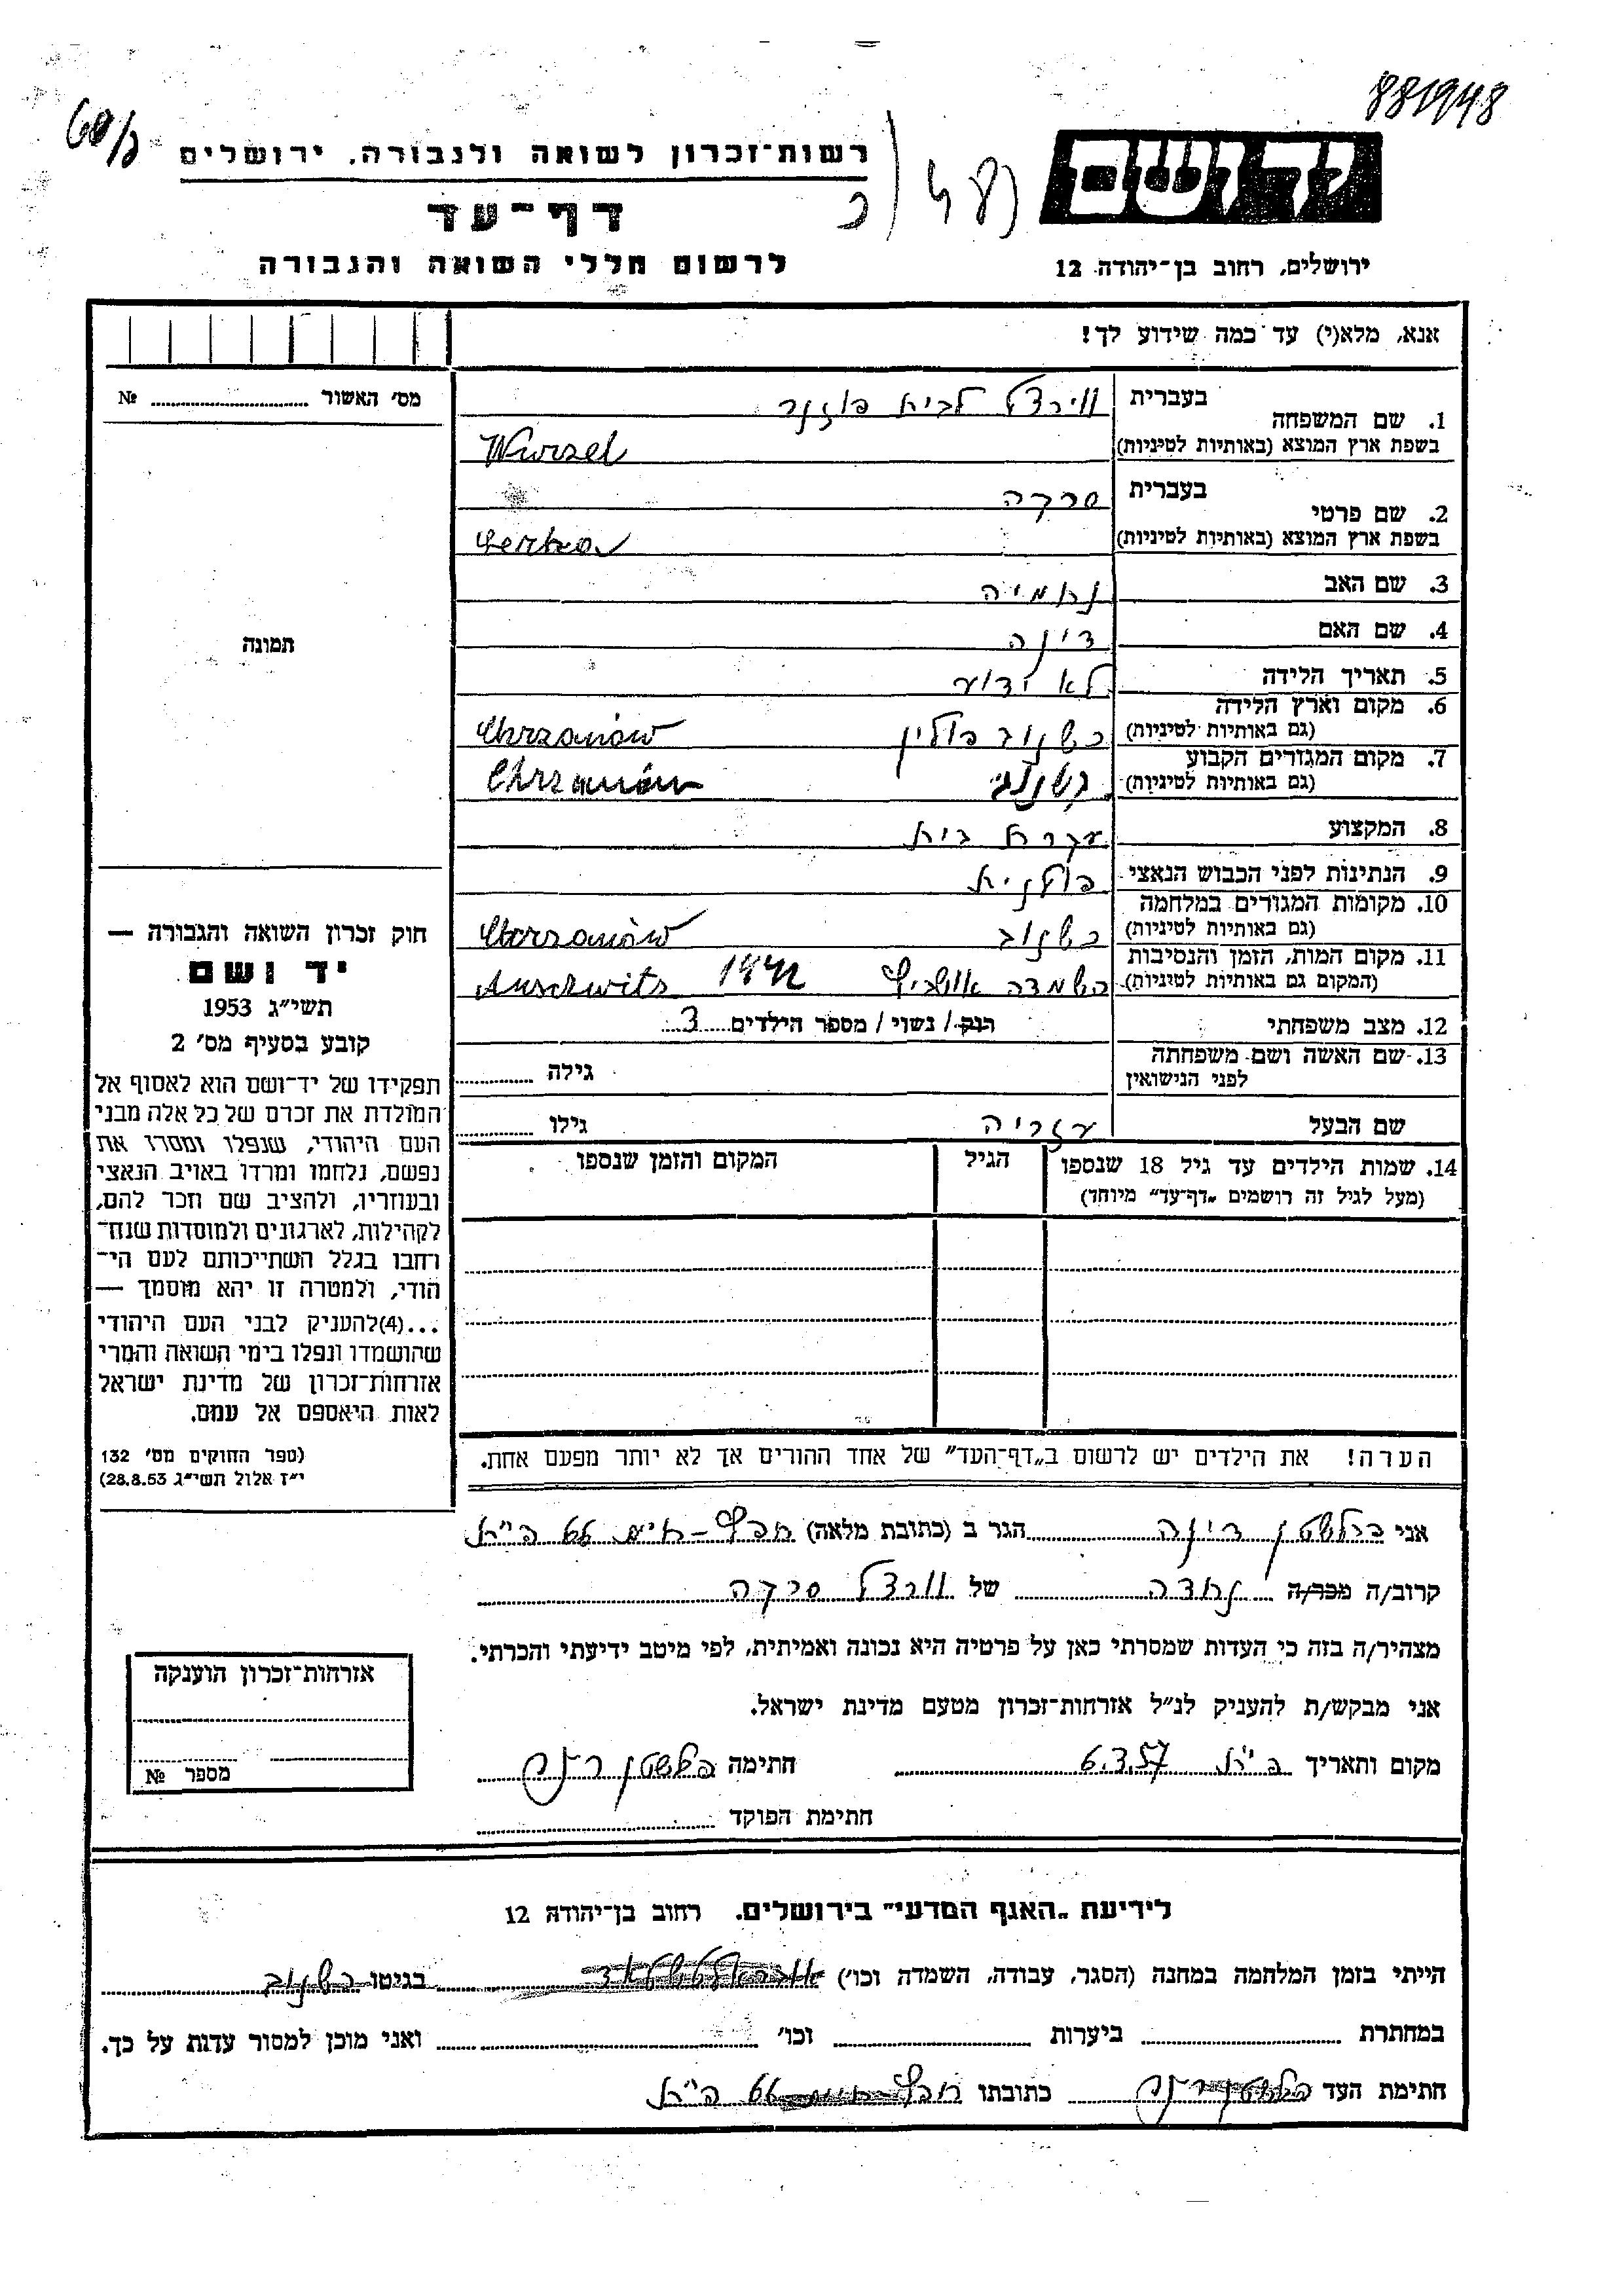 881948
60/3
רשות־זכרון לשואה ולגבורה, ירושלים
יד ושם
דף־עד
לרשום חללי השואה והגבורה
ירושלים, רחוב בן־יהודה 12
אנא, מלא(י) עד כמה שידוע לך!
מס׳ האשור № 
בעברית
1. שם המשפחה
ווירצל לבית פוזנר
בשפת ארץ המוצא (באותיות לטיניות) Wurzel
בעברית
2. שם פרטי
סרקה
בשפת ארץ המוצא (באותיות לטיניות)
3. שם האב נחמיה
4. שם האם דינה
תמונה
5. תאריך הלידה לא ידוע
6. מקום וארץ הלידה
(גם באותיות לטיניות) כשנוב פולין Chrzanów
7. מקום המגורים הקבוע
(גם באותיות לטיניות) Chrzanów
8. המקצוע עקרת בית
9. הנתינות לפני הכבוש הנאצי פולנית
10. מקומות המגורים במלחמה
(גם באותיות לטיניות) כשנוב Chrzanów
11. מקום המות, הזמן והנסיבות
(המקום גם באותיות לטיניות) השמדה אושביץ 1942 Auschwitz
12. מצב משפחתי רוק/ נשוי/ מספר הילדים 3
13. שם האשה ושם משפחתה
לפני הנישואין
גילה
שם הבעל עזריה גילו
14. שמות הילדים עד גיל 18 שנספו הגיל המקום והזמן שנספו
(מעל לגיל זה רושמים „דף־עד״ מיוחד)
חוק זכרון השואה והגבורה —
יד ושם
תשי״ג 1953
קובע בסעיף מס׳ 2
תפקידו של יד־ושם הוא לאסוף אל
המולדת את זכרם של כל אלה מבני
העם היהודי, שנפלו ומסרו את
נפשם, נלחמו ומרדו באויב הנאצי
ובעוזריו, ולהציב שם וזכר להם,
לקהילות, לארגונים ולמוסדות שנח־
רחבו בגלל השתייכותם לעם הי־
הודי, ולמטרה זו יהא מוסמך —
...(4)להעניק לבני העם היהודי
שהושמדו ונפלו בימי השואה והמרי
אזרחות־זכרון של מדינת ישראל
לאות היאספם אל עמם.
(ספר החוקים מס׳ 132
י״ז אלול תשי״ג 28.8.53)
הערה! את הילדים יש לרשום ב„דף־העד״ של אחד ההורים אך לא יותר מפעם אחת.
אני דינה הגר ב (כתובת מלאה)
קרוב/ה מכר/ה של וורצל סרקה
מצהיר/ה בזה כי העדות שמסרתי כאן על פרטיה היא נכונה ואמיתית, לפי מיטב ידיעתי והכרתי.
אני מבקש/ת להעניק לנ״ל אזרחות־זכרון מטעם מדינת ישראל.
מקום ותאריך 6.3.57 חתימה
חתימת הפוקד
אזרחות־זכרון הוענקה
מספר №
לידיעת „האגף המדעי״ בירושלים, רחוב בן־יהודה 12
הייתי בזמן המלחמה במחנה (הסגר, עבודה, השמדה וכו׳) בגיטו כשנוב
במחתרת ביערות וכו׳ ואני מוכן למסור עדות על כך.
חתימת העד כתובתו